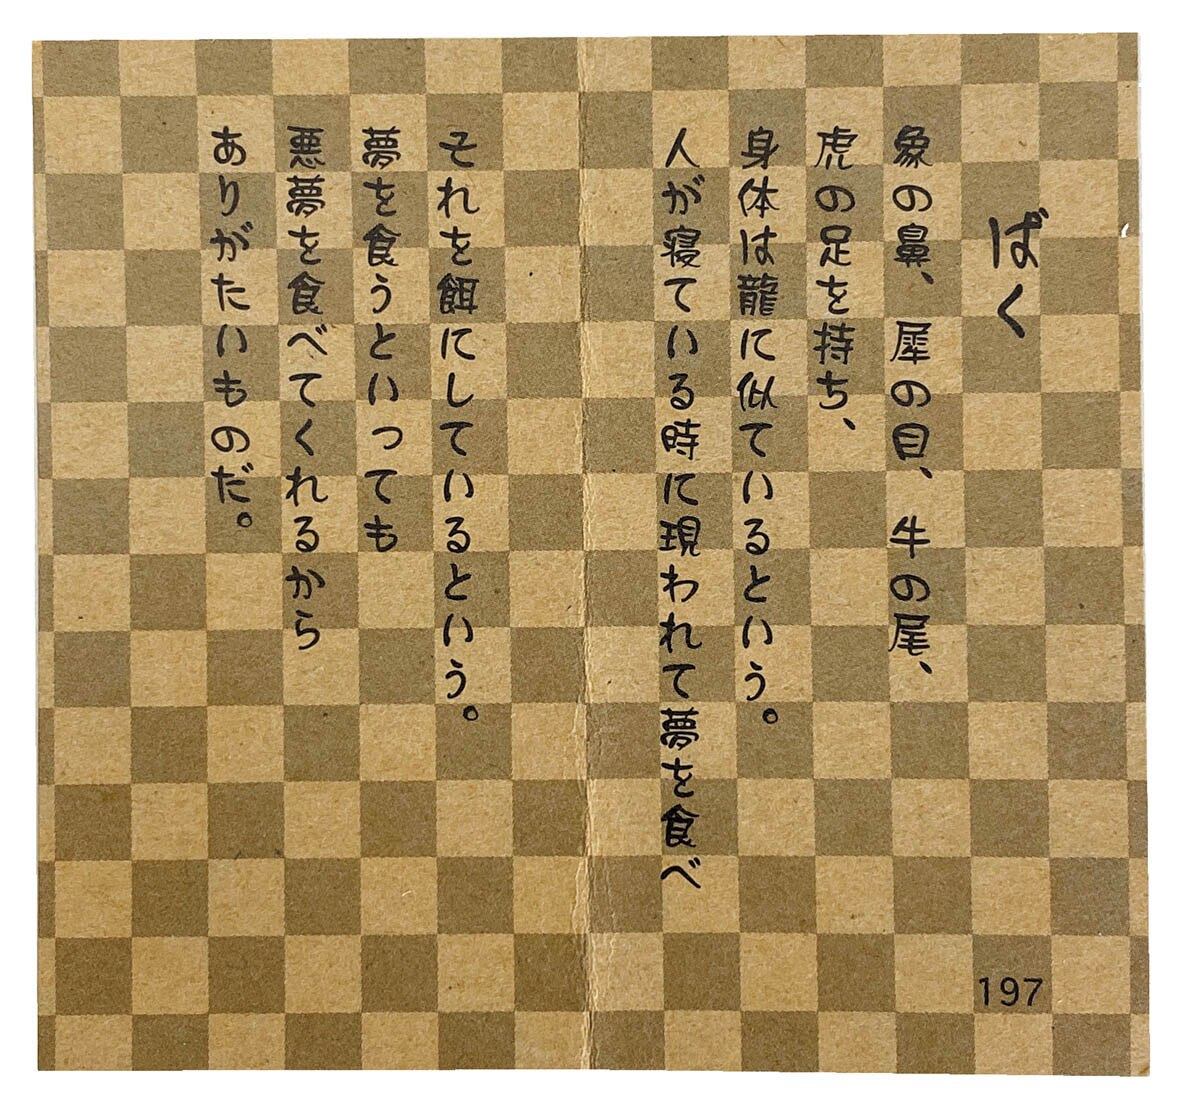 ばく
象の鼻、犀の目、牛の尾、
虎の足を持ち、
身体は龍に似ているという。
人が寝ている時に現われて夢を食べ
それを餌にしているという。
夢を食うといっても
悪夢を食べてくれるから
ありがたいものだ。
197